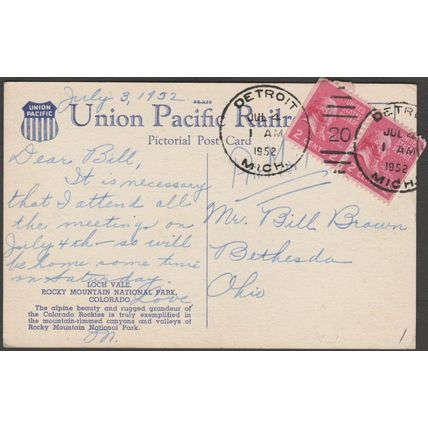 July 3, 1952
UNION
PACIFIC
Union Pacific Railr
Pictorial Post Card
Dear Bill,
It is necessary
that I attend all
the meetings on
July 4th - so will
be home some time
on Saturday.
Love
M.
LOCH VALE,
ROCKY MOUNTAIN NATIONAL PARK,
COLORADO
The alpine beauty and rugged grandeur of
the Colorado Rockies is truly exemplified in
the mountain-rimmed canyons and valleys of
Rocky Mountain National Park.
DETROIT
JUL 4
1 AM
1952
MICH.
20
2 CENTS
DETRO
JUL 4
1 AM
1952
MICH.
Mr. Bill Brown
Bethesda
Ohio
1